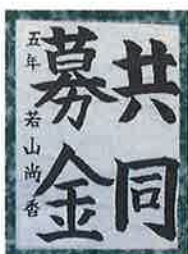 共同
募金
五年 若山尚香